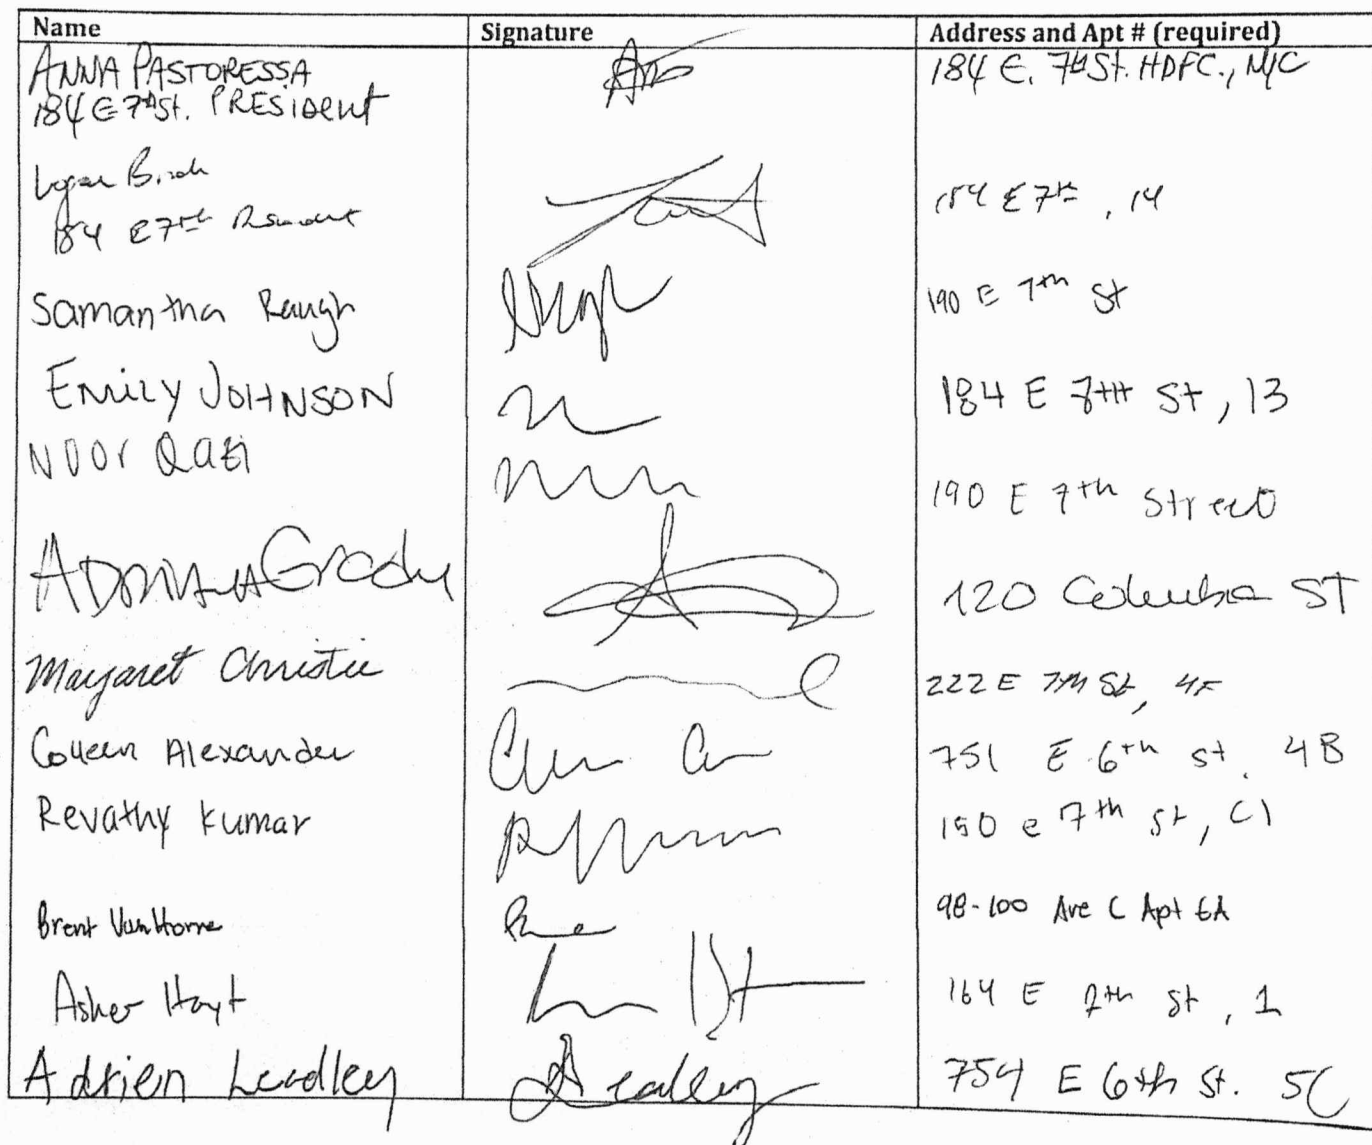 Name Signature Address and Apt # (required)
ANNA PASTORESSA 184 E. 7th St. HDFC., NYC
184 E 7th St. PRESIDENT
Logan
184 E 7th , 14
184 E 7th
Samantha Raugh 190 E 7th St
EMILY JOHNSON 184 E 7TH St, 13
Noor Qazi
190 E 7th Street
Grady 120 Columbia ST
Margaret Christie 222 E 7th St, 4F
Colleen Alexander 751 E 6th st. 4B
Revathy Kumar 190 e 7th st, C1
Brent VanHorne 98-100 Ave C Apt 6A
Asher Hoyt 164 E 7th St, 1
Adrien Leadley Leadley 754 E 6th St. 5C